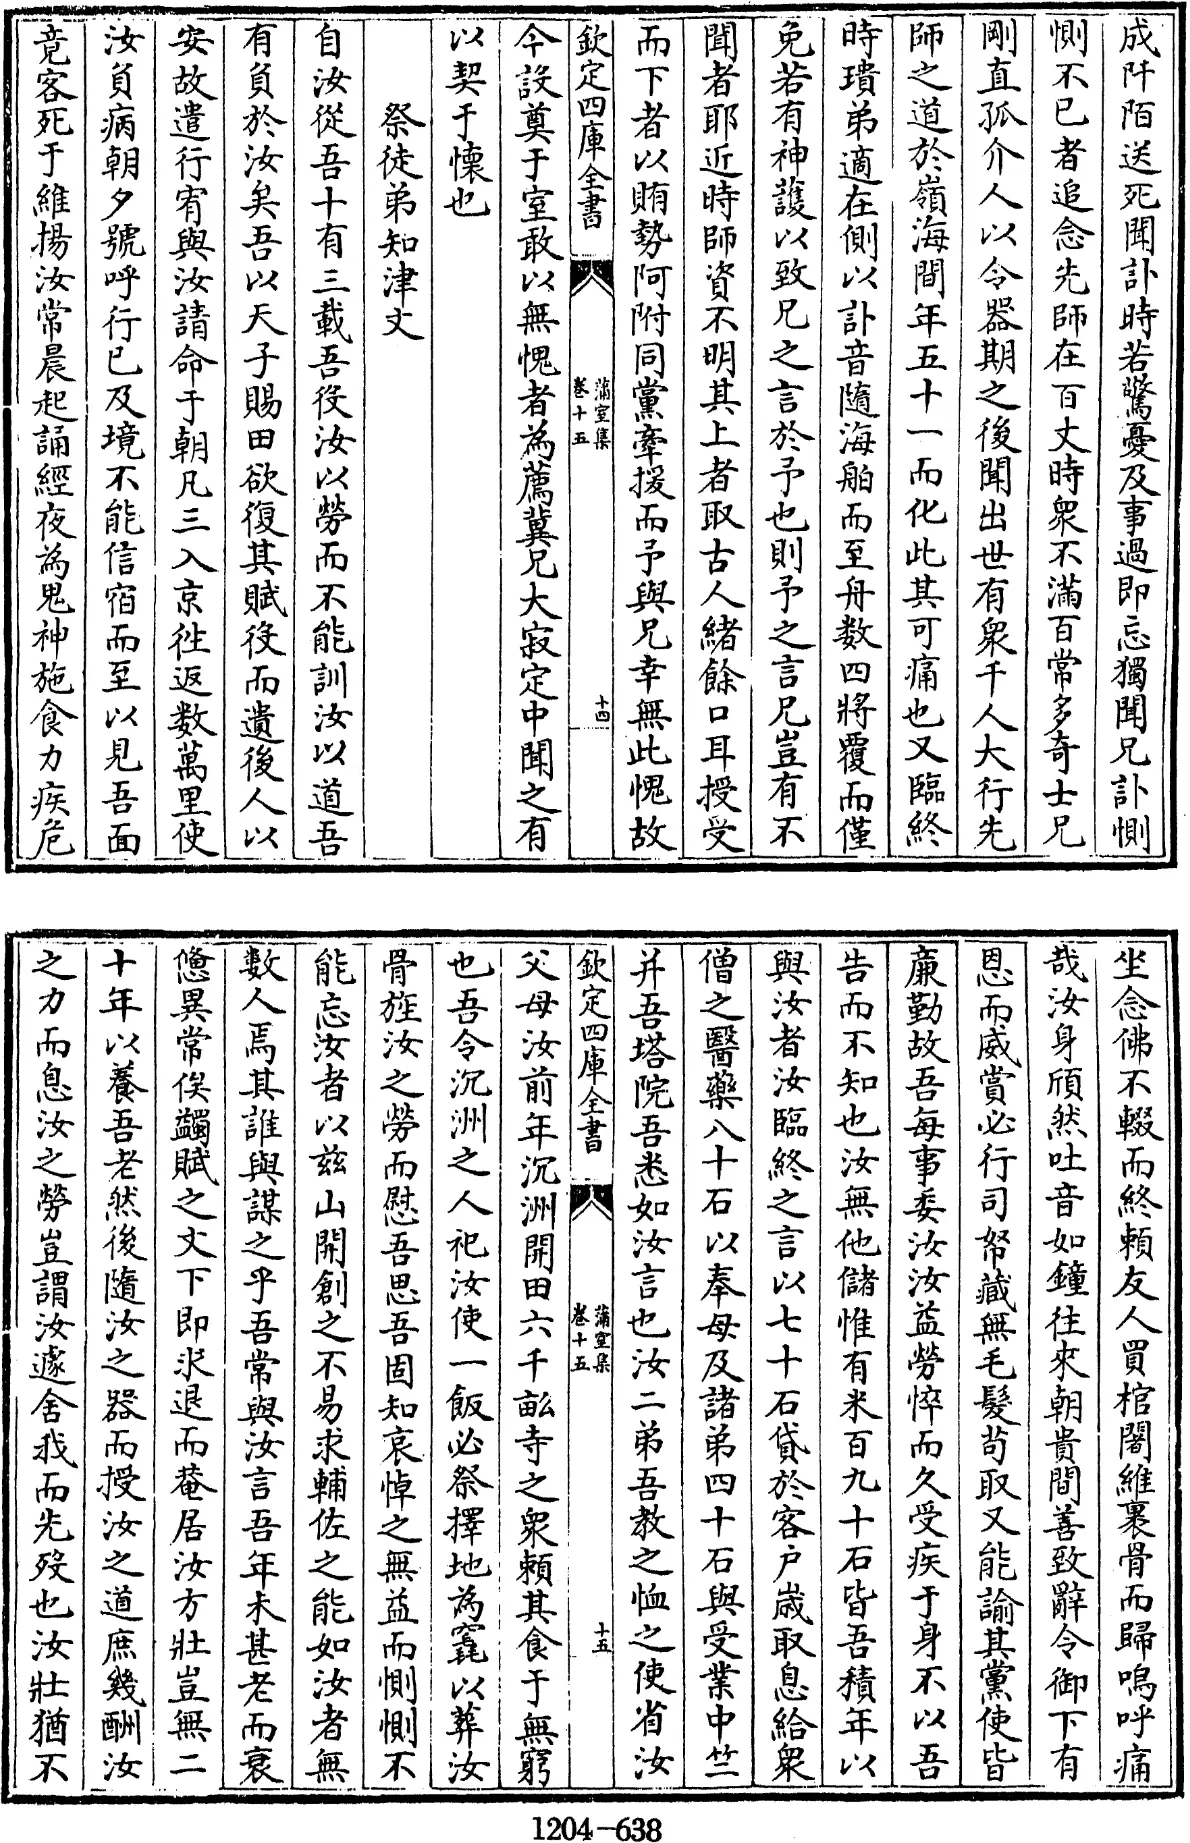 成阡陌送死聞訃時若驚憂及事過即忘獨聞兄訃惻
惻不已者追念先師在百丈時衆不滿百常多竒士兄
剛直孤介人以令器期之後聞出世有衆千人大行先
師之道於嶺海間年五十一而化此其可痛也又臨終
時璝弟適在側以訃音隨海舶而至舟数四將覆而僅
免若有神護以致兄之言於予也則予之言兄豈有不
聞者耶近時師資不明其上者取古人緒餘口耳授受
而下者以賄勢阿附同黨牽援而予與兄幸無此愧故
欽定四庫全書
蒲室集
卷十五
十四
今設奠于室敢以無愧者為薦冀兄大寂定中聞之有
以契于懐也
祭徒弟知津文
自汝從吾十有三載吾役汝以勞而不能訓汝以道吾
有負於汝矣吾以天子賜田欲復其賦役而遺後人以
安故遣行宥與汝請命于朝凡三入京徃返数萬里使
汝負病朝夕號呼行已及境不能信宿而至以見吾面
竟客死于維揚汝常晨起誦經夜為鬼神施食力疾危
坐念佛不輟而終頼友人買棺闍維裹骨而歸嗚呼痛
哉汝身頎然吐音如鐘往來朝貴間善致辭令御下有
恩而威賞必行司帑藏無毛髮茍取又能諭其黨使皆
廉勤故吾每事委汝汝益勞悴而久受疾于身不以吾
告而不知也汝無他儲惟有米百九十石皆吾積年以
與汝者汝臨終之言以七十石貸於客户歳取息給衆
僧之醫藥八十石以奉母及諸弟四十石與受業中竺
并吾塔院吾悉如汝言也汝二弟吾教之恤之使省汝
欽定四庫全書
蒲室集
卷十五
十五
父母汝前年沉洲開田六千畝寺之衆頼其食于無窮
也吾令沉洲之人祀汝使一飯必祭擇地為窆以葬汝
骨旌汝之勞而慰吾思吾固知哀悼之無益而惻惻不
能忘汝者以兹山開創之不易求輔佐之能如汝者無
數人焉其誰與謀之乎吾常與汝言吾年未甚老而衰
憊異常俟蠲賦之文下即求退而菴居汝方壯豈無二
十年以養吾老然後隨汝之器而授汝之道庶幾酬汝
之力而息汝之勞豈謂汝遽舍我而先殁也汝壯猶不
1204-638